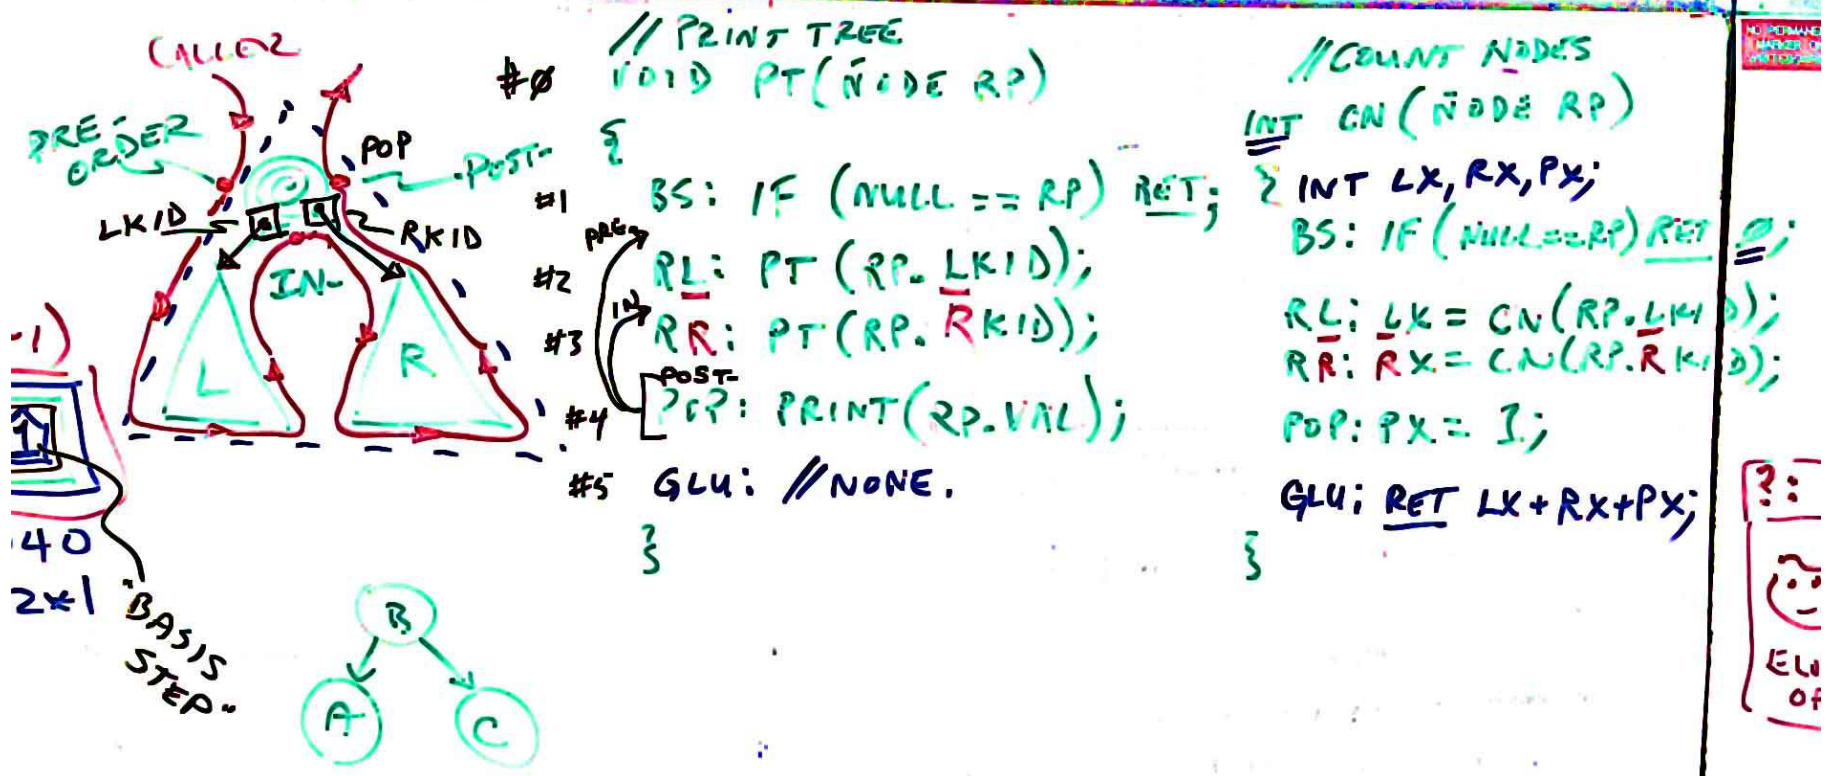 CALLER
PRE-
ORDER
POP
POST-
LKID
RKID
IN-
L
R
-1)
1
40
2*1
"BASIS
STEP"
B
A
C
// PRINT TREE
#0 VOID PT(NODE RP)
{
#1 BS: IF (NULL == RP) RET;
PRE-
#2 RL: PT (RP. LKID);
IN
#3 RR: PT (RP. RKID);
POST-
#4 POP: PRINT(RP.VAL);
#5 GLU: //NONE.
}
//COUNT NODES
INT CN (NODE RP)
{ INT LX, RX, PX;
BS: IF (NULL==RP) RET 0;
RL: LX = CN(RP.LKID);
RR: RX = CN(RP.RKID);
POP: PX = 1;
GLU: RET LX+RX+PX;
}
NO PERMANE
MARKER ON
WHITEBOAR
?:
OF